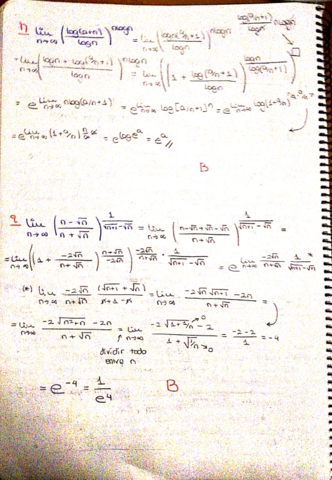 n) lim n→∞ (log(a+n)/log n)^(n log n) = lim n→∞ (log(n(a/n+1))/log n)^(n log n)
= lim n→∞ (log n + log(a/n+1)/log n)^(n log n) = lim n→∞ ((1 + log(a/n+1)/log n)^(log n/log(a/n+1)))^(log(a/n+1)/log n · n log n)
= e^(lim n→∞ n log(a/n+1)) = e^(lim n→∞ log[a/n+1]^n) = e^(lim n→∞
= e^(lim n→∞ = e^(log e^a) = e^a //
B
q lim n→∞ (n-√n/n+√n)^(1/√n+1-√n) = lim n→∞ (n-√n+√n-√n/n+√n)^(1/√n+1-√n) =
= lim n→∞ ((1 + -2√n/n+√n)^(n+√n/-2√n))^(-2√n/n+√n · 1/√n+1-√n) = e^(lim n→∞ -2√n/n+√n · 1/√n+1-√n) *=
(*) lim n→∞ -2√n/n+√n (√n+1+√n)/n+1-n = lim n→∞ -2√n√n+1-2n/n+√n =
= lim n→∞ -2√n²+n-2n/n+√n = lim n→∞ -2√1+1/n-2/1+√1/n = -2-2/1 = -4
dividir todo
entre n
= e^-4 = 1/e^4 B